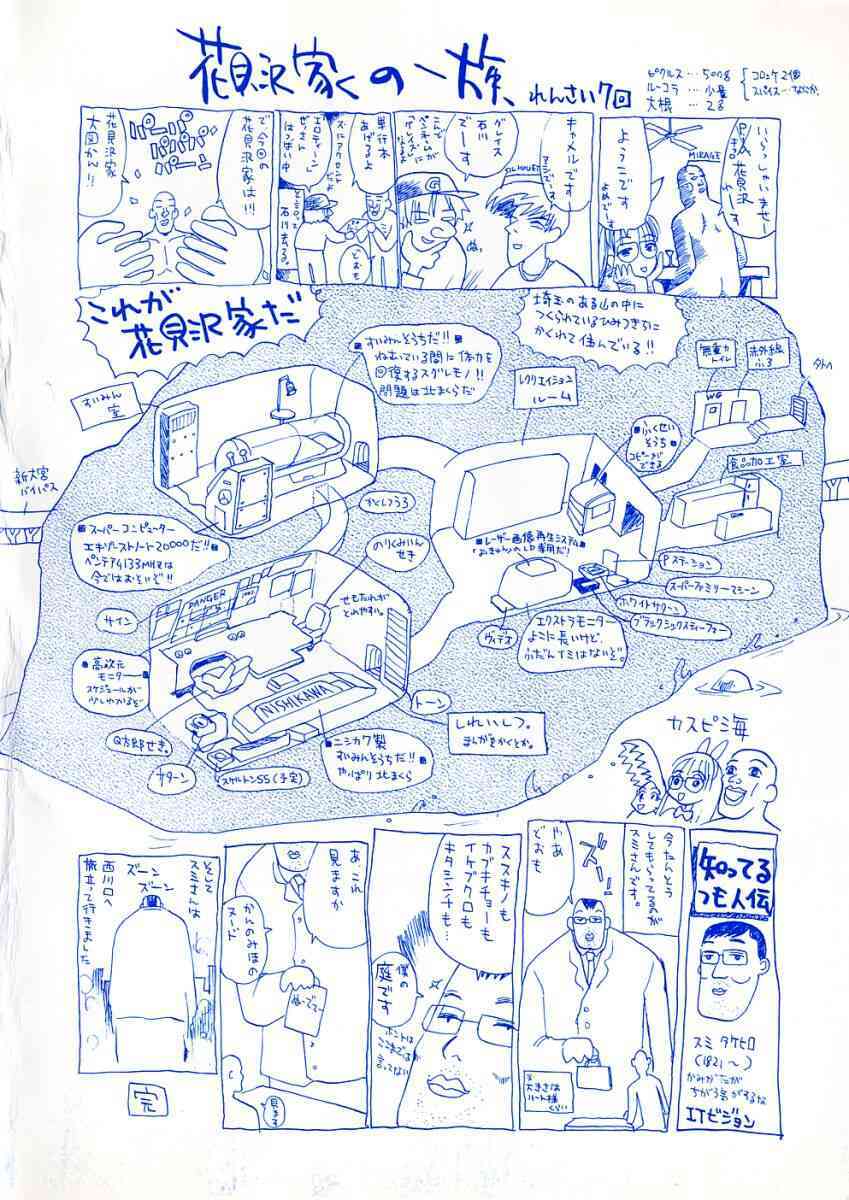 花見沢家の一族
れんさい7回
ピクルス…500g
ルーコラ…少量
大根…2g
コロッケ2個
スパイス…なにか
いらっしゃいませー
花見沢
れーす
MIRAGE
ようこです
よめでーす
キャメルでーす
グレイス
石川
でーす
ぬ。
G
単行本
あげるよ
どおも
石川去る。
で、今回の
花見沢家は!!
パパパパーパーパパーン
花見沢家
大図かん!!
これが
花見沢家だ
埼玉のある山の中に
つくられているひみつきちに
かくれて住んでいる!!
すいみんそうちだ!!
ねむいている間に体力を
回復するスグレモノ!!
問題は北まくらだ
すいみん
室
レクリエイション
ルーム
無重力
トイレ
赤外線
ふろ
WC
ふくせい
そうち
コピーが
できる
食品加工室
新大宮
バイパス
スーパーコンピューター
エキゾーストノート20000だ!!
ペンテアム133MHzは
今ではおそいぞ!!
かくしつうろ
のりくみいん
せき
せもたれが
とめやすい。
レーザー画像再生システム
Pステーション
スーパーファミリーマシーン
ホワイトサターン
ブラックシックスティーフォー
エクストラモニター
よこに長いけど、
ふだんイミはないぞ。
ヴィデオ
サイン
DANGER
高次元
モニター
スケジュールが
少しわかるぞ
NISHIKAWA
トーン
Q太郎せき。
サターン
スケルトンSS(予定)
ニシカワ製
すいみんそうちだ!!
やっぱり北まくら
しれいしつ。
まんがをかくとか。
カスピ海
知ってる
つも人伝
スミ タケヒロ
(1821〜)
かみがたが
ちがう気がするな
ITビジョン
今たんとう
してもらってるのが
スミさんです。
ズーン
やあ
どおも
大きさは
ハート様
くらい
ススキノも
カブキチョーも
イケブクロも
キタシンチも…
僕の
庭です
ホントは
ここまでは
言ってない
あ、これ
見ますか
かんのみほの
ヌード
ぬーどでー
見まる
そして
スミさんは
西川口へ
旅立って行きました
ズーン
ズーン
完